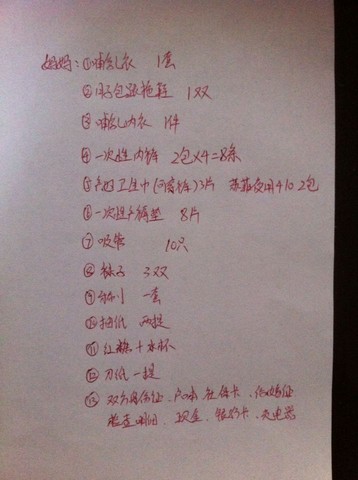 妈妈：①哺乳衣 1套
②月子包跟拖鞋 1双
③哺乳内衣 1件
④一次性内裤 2包×4=8条
⑤产妇卫生巾 3片 使用410 2包
⑥一次性产褥垫 8片
⑦吸管 10只
⑧袜子 3双
⑨ 一套
⑩抽纸 两提
⑪红糖+水杯
⑫刀纸一提
⑬双方身份证、户口本 社保卡、结婚证
检查 、现金、银行卡、充电器